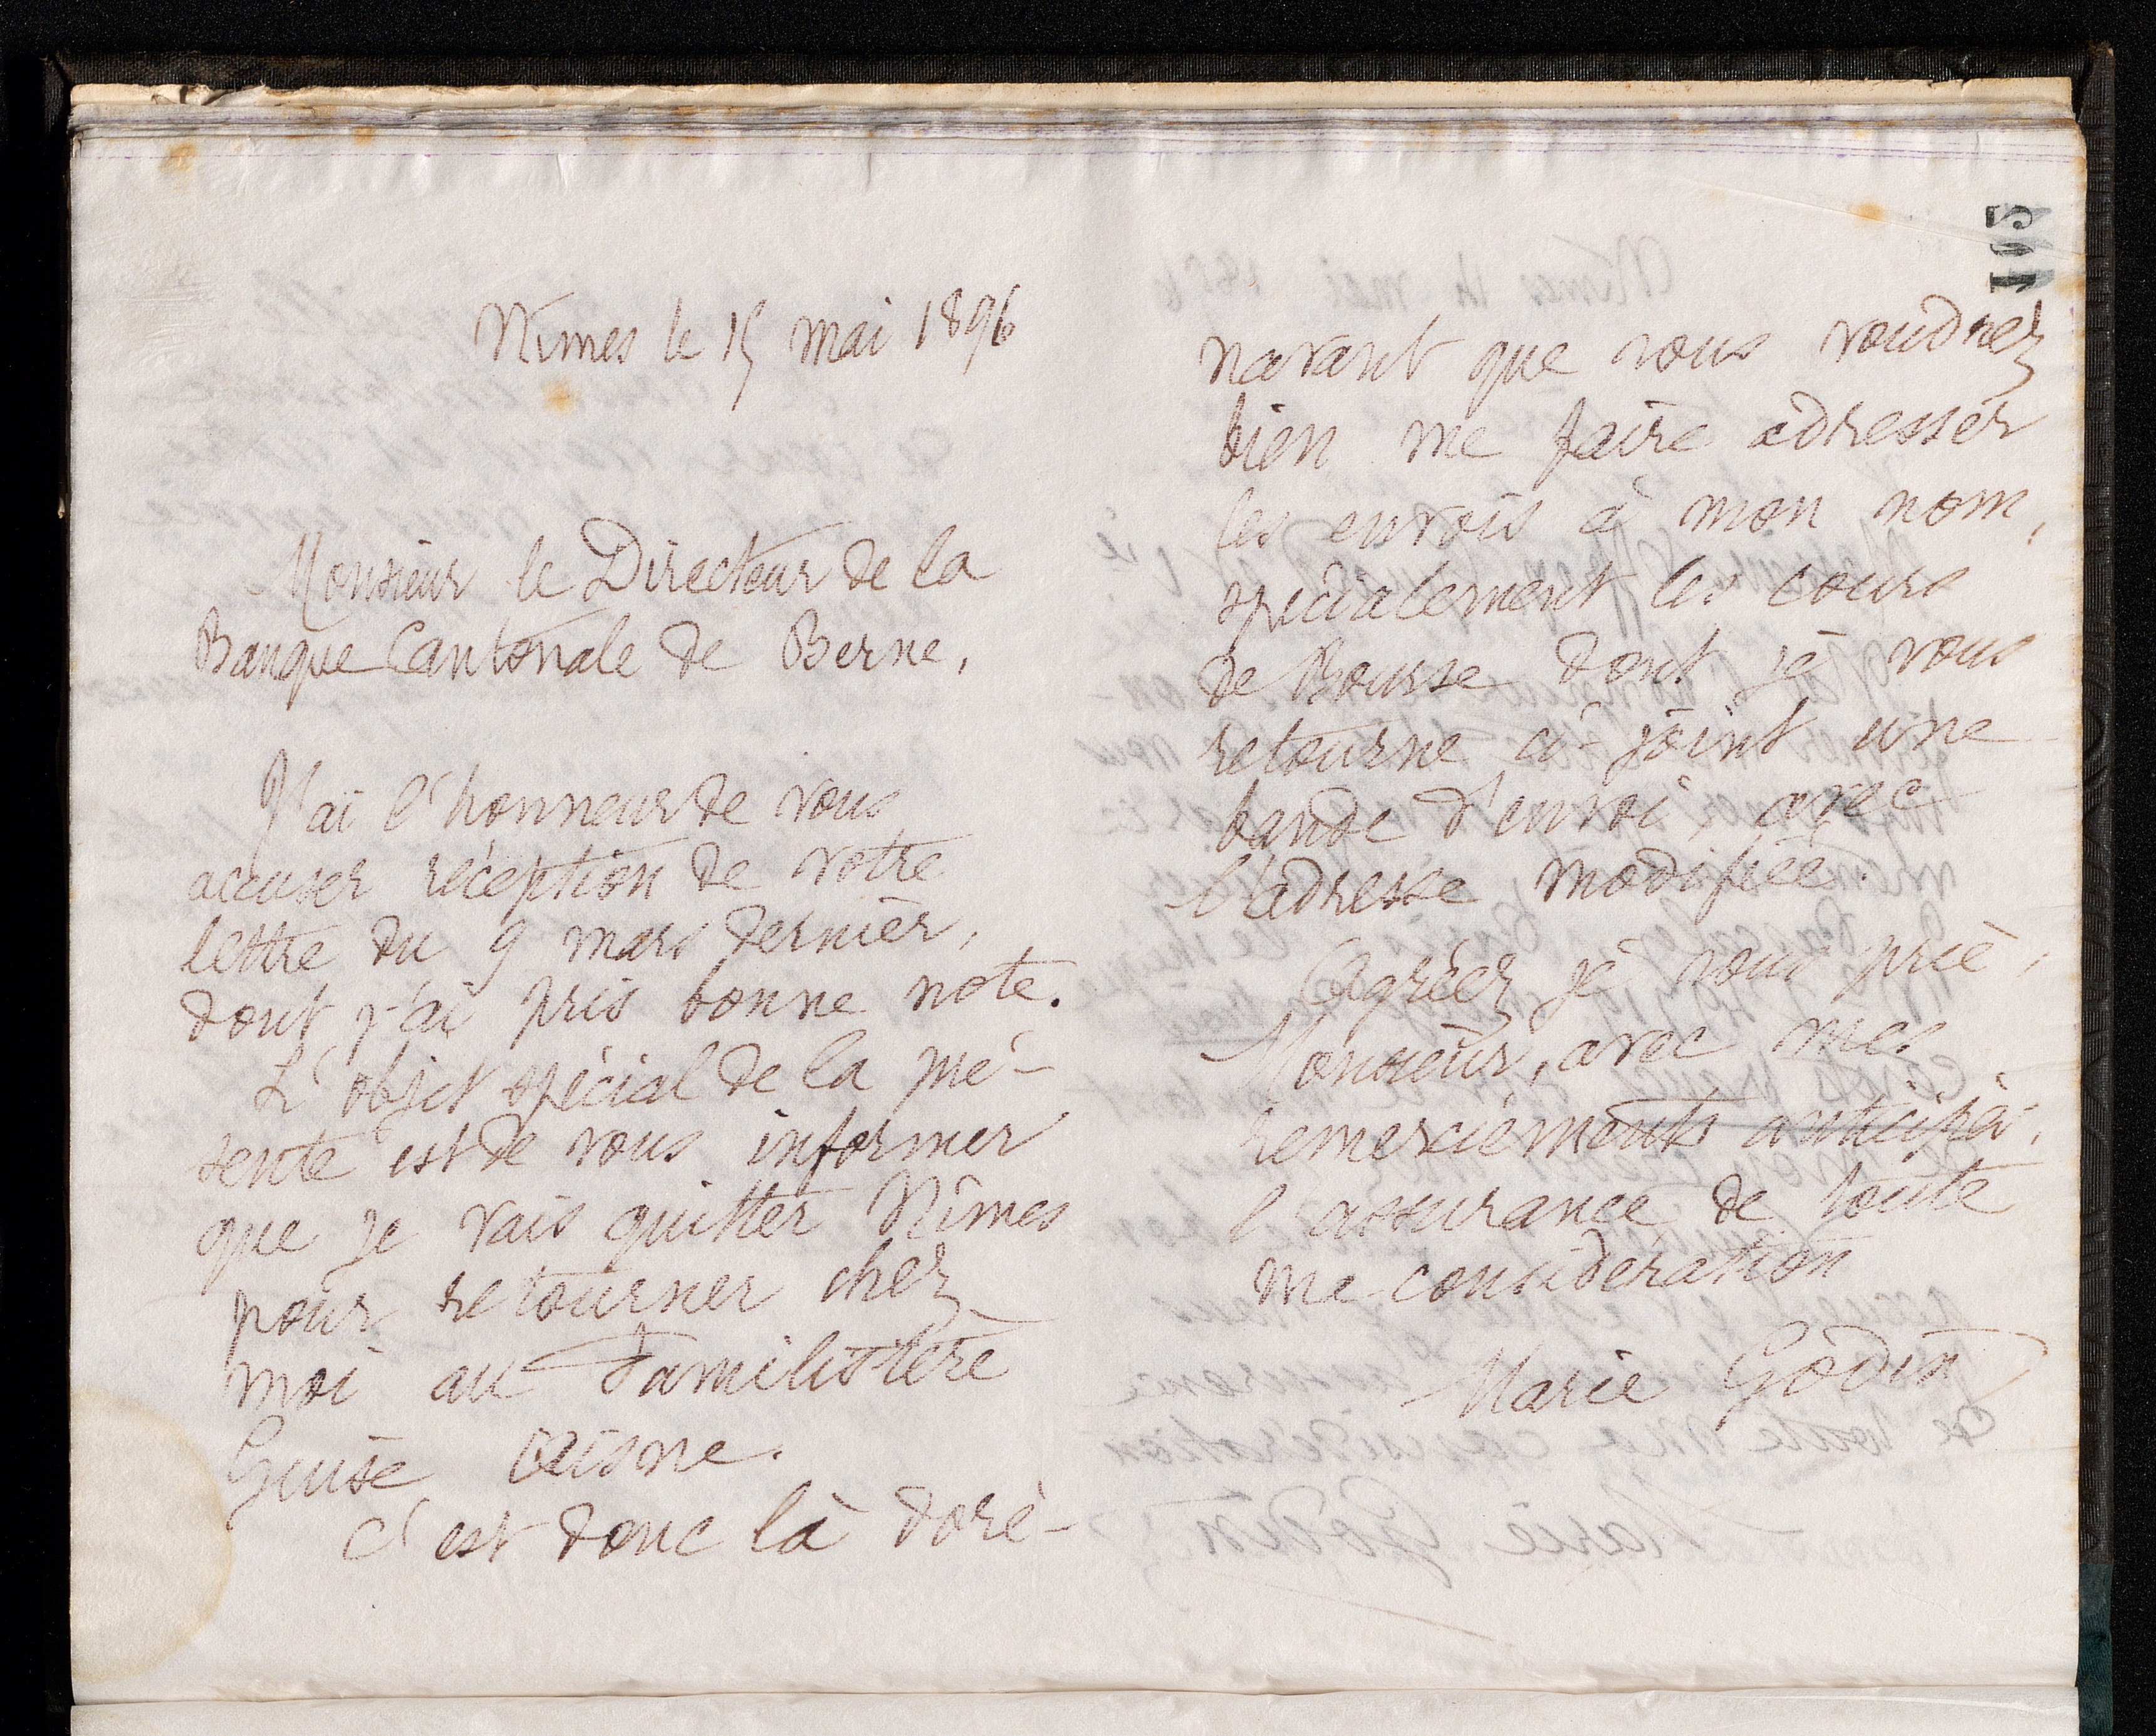 Nîmes le 15 mai 1896
Monsieur le Directeur de la
Banque Cantonale de Berne,
J'ai l'honneur de vous
accuser réception de votre
lettre du 9 mars dernier,
dont j'ai pris bonne note.
L'objet spécial de la pré-
sente est de vous informer
que je vais quitter Nîmes
pour retourner chez
moi au Familistère
Guise Aisne.
C'est donc là doré-
105
navant que vous voudrez
bien me faire adresser
les envois à mon nom,
spécialement les cours
de Bourse dont je vous
retourne ci-joint une
bande d'envoi, avec
l'adresse modifiée.
Agréez je vous prie,
Monsieur, avec mes
remerciements anticipés,
l'assurance de toute
ma considération
Marie Godin